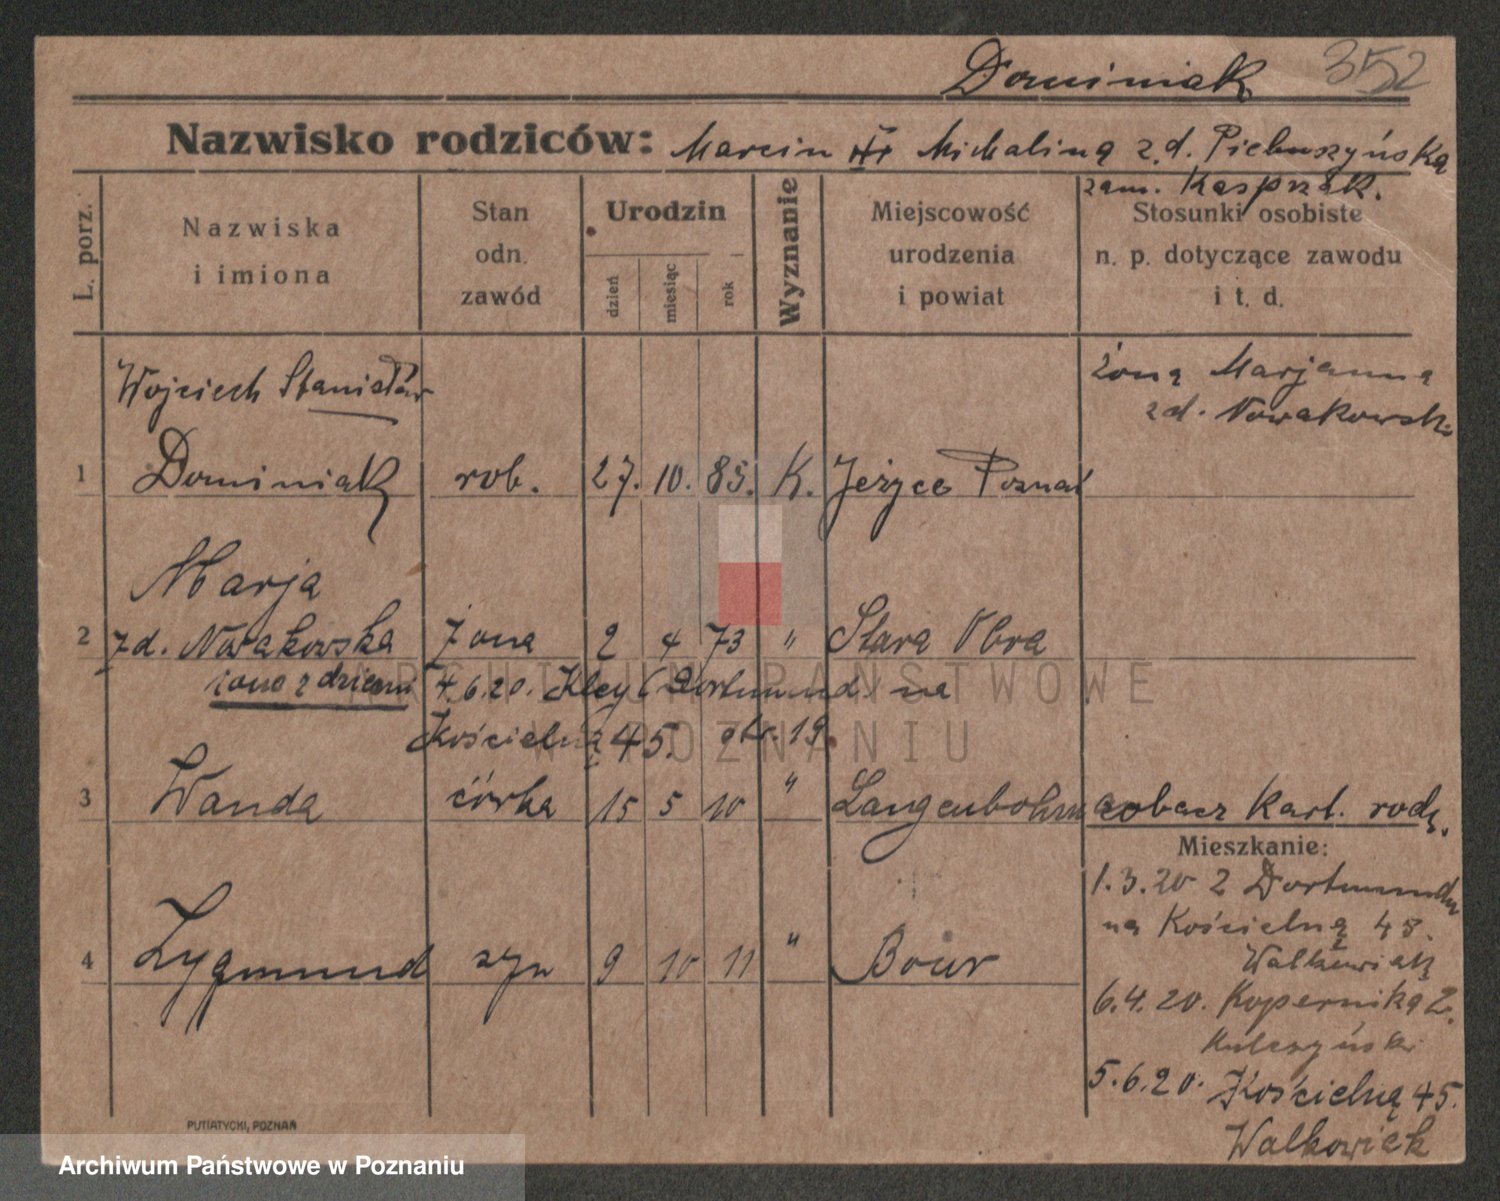 Dominiak 352
Nazwisko rodziców: Marcin Michalina z d. Pieluszyńska
zam. Kasprzak.
L. porz.
Nazwiska
i imiona
Stan
odn.
zawód
Urodzin
dzień
miesiąc
rok
Wyznanie
Miejscowość
urodzenia
i powiat
Stosunki osobiste
n. p. dotyczące zawodu
i t. d.
Wojciech Stanisław
żona Marjanna
zd. Nowakowska
1 Dominiak rob. 27. 10. 85. K. Jeżyce Poznań
Marja
2 zd. Nowakowska żona 2 4 73 " Stara Obra
żona z dziećmi 4.6.20. Kley (Dortmund) na
Kościelną 45. 19.
3 Wanda córka 15 5 10 " Langenbohm zobacz kart. rodz.
Mieszkanie:
1.3.20 z Dortmundu
na Kościelną 45.
Walkowiak
4 Zygmund syn 9 10 11 " Bour
6.4.20. Kopernika 2.
Kulczyński
5.6.20. Kościelną 45.
Walkowiak
PUTIATYCKI, POZNAŃ
ARCHIWUM PAŃSTWOWE
W POZNANIU
Archiwum Państwowe w Poznaniu